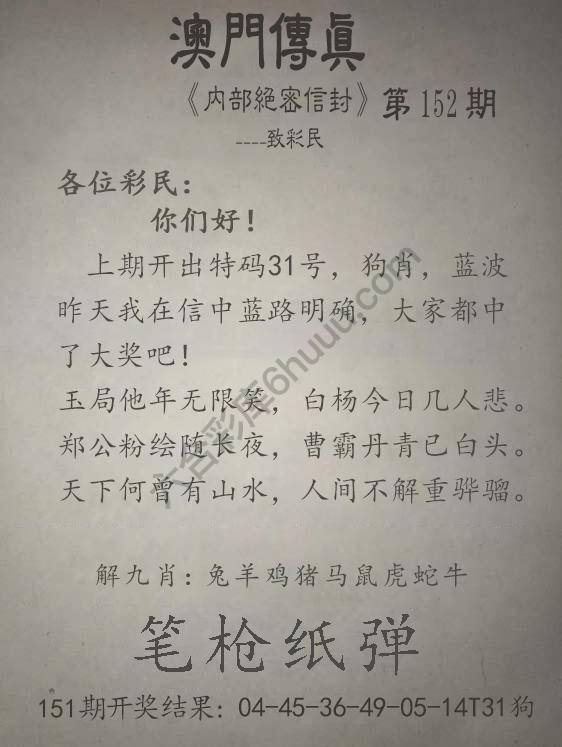 澳門傳眞
《內部絕密信封》第152期
----致彩民
各位彩民：
你们好！
上期开出特码31号，狗肖，蓝波
昨天我在信中蓝路明确，大家都中
了大奖吧！
玉局他年无限笑，白杨今日几人悲。
郑公粉绘随长夜，曹霸丹青已白头。
天下何曾有山水，人间不解重骅骝。
解九肖：兔羊鸡猪马鼠虎蛇牛
笔枪纸弹
151期开奖结果：04-45-36-49-05-14T31狗
六合彩库6huuu.com